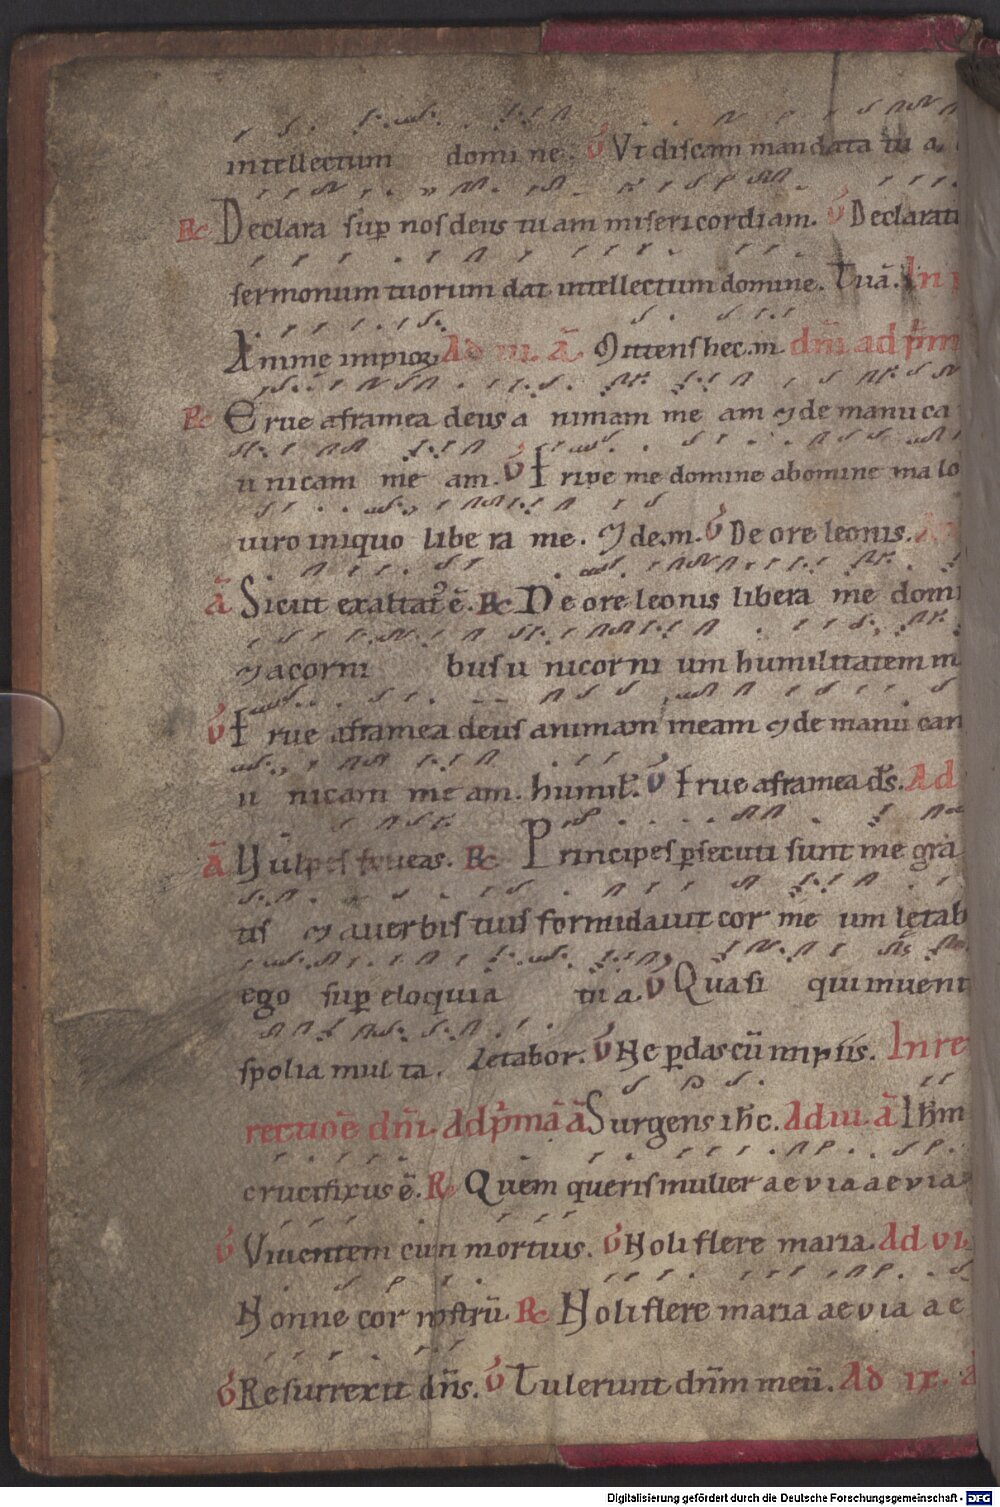 intellectum domi ne. V Vt discam mandata tu a.
R Declara sup nos deus tu am misericordiam. V Declarati
sermonum tuorum dat intellectum domine. Tuā. In
Anime impior. Ad iii. ā Mittens hec. in. dn̄i ad pm
R Erue aframea deus a nimam me am & de manu ca
u nicam me am. V Eripe me domine abomine malo
uiro iniquo libe ra me. & de.m. V De ore leonis.
ā Sicut exaltat ē. R De ore leonis libera me domi
& acorni bus u nicorni um humilitatem m
V Erue aframea deus animam meam & de manu can
u nicam me am. humil. V Erue aframea ds. Ad
ā Vulpes foueas. R Principes psecuti sunt me gra
tis & auerbis tuis formidauit cor me um letab
ego sup eloquia tu a. V Quasi qui inuenit
spolia multa. Letabor. V Ne pdas cū impiis. In re
rectiōe dn̄i. Ad pmā ā Surgens ihc. Ad iii. ā Ihm
crucifixus ē. R Quem queris mulier aevia aevia
V Viuentem cum mortuis. V Noli flere maria. Ad vi.
Nonne cor nostrū R Noli flere maria aevia ae
V Resurrexit dn̄s. V Tulerunt dn̄m meū. Ad ix. ā
Digitalisierung gefördert durch die Deutsche Forschungsgemeinschaft - DFG